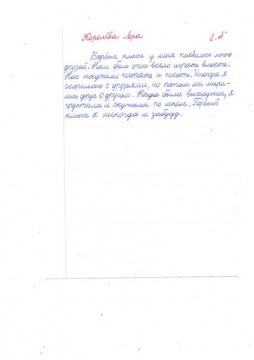 Королёва Яра 2 "А"
В первом классе у меня появилось много
друзей. Нам было очень весело играть вместе.
Нас научили читать и писать. Иногда я
ссорилась с друзьями, но потом мы мири-
лись друг с другом. Когда были выходные, я
грустила и скучала по школе. Первый
класс я никогда не забуду.